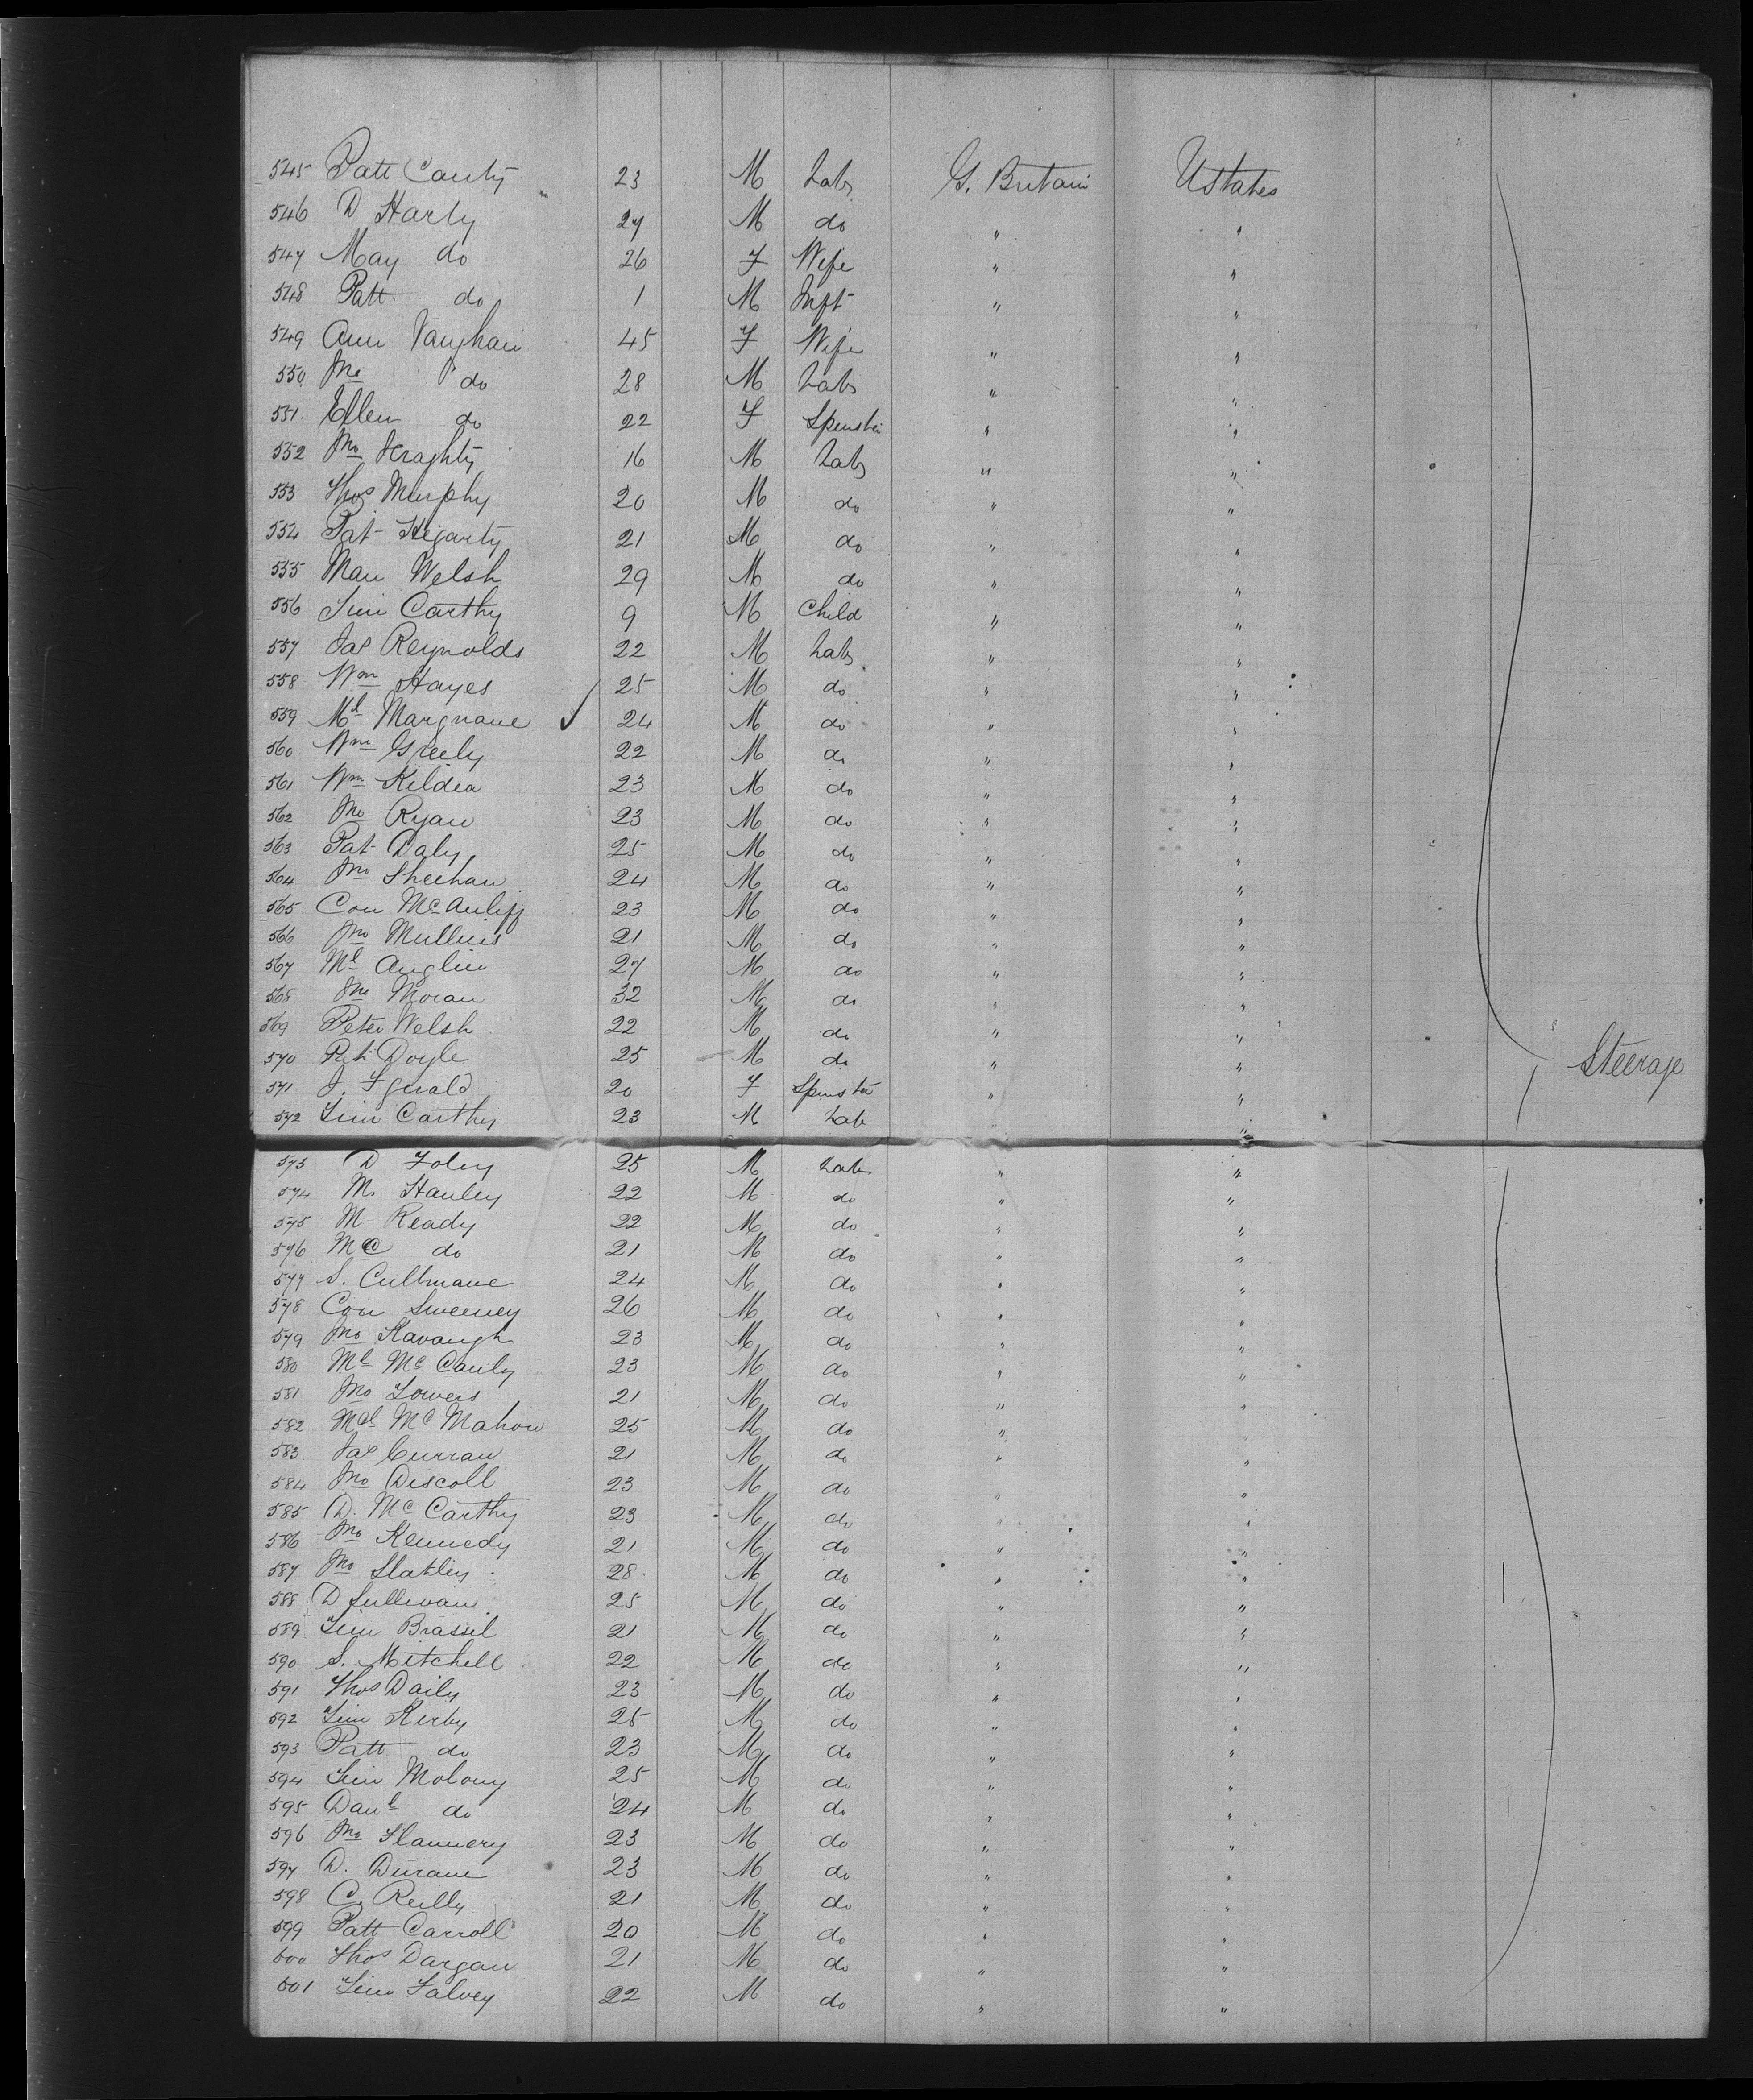 545 Patt Canty 23 M Labr G. Britain Ustates
546 D Harly 27 M do " "
547 May do 26 F Wife " "
548 Patt do 1 M Inft " "
549 Ann Vaughan 45 F Wife " "
550 Jno do 28 M Labr " "
551 Ellen do 22 F Spinster " "
552 Jno Heraghty 16 M Labr " "
553 Thos Murphy 20 M do " "
554 Pat Higarty 21 M do " "
555 Mau Welsh 29 M do " "
556 Tim Carthy 9 M Child " "
557 Jas Reynolds 22 M Labr " "
558 Wm Hayes 25 M do " "
559 Ml Margnane ✓ 24 M do " "
560 Wm Greely 22 M do " "
561 Wm Kildea 23 M do " "
562 Jno Ryan 23 M do " "
563 Pat Daly 25 M do " "
564 Jno Sheehan 24 M do " "
565 Con McAuliff 23 M do " "
566 Jno Mullins 21 M do " "
567 Ml Anglin 27 M do " "
568 Jno Moran 32 M do " "
569 Peter Welsh 22 M do " "
570 Pat Doyle 25 M do " " Steerage
571 J. Fgerald 20 F Spinster " "
572 Tim Carthy 23 M Labr " "
573 D Foley 25 M Labr " "
574 M. Hanley 22 M do " "
575 M Ready 22 M do " "
576 MC do 21 M do " "
577 S. Cullinane 24 M do " "
578 Con Sweeney 26 M do " "
579 Jno Kavaugh 23 M do " "
580 Ml McCauly 23 M do " "
581 Jno Towers 21 M do " "
582 Mcl McMahon 25 M do " "
583 Jas Curran 21 M do " "
584 Jno Discoll 23 M do " "
585 D. McCarthy 23 M do " "
586 Jno Kennedy 21 M do " "
587 Jno Slatley 28 M do " "
588 D Sullivan 25 M do " "
589 Tim Brassil 21 M do " "
590 S. Mitchell 22 M do " "
591 Thos Daily 23 M do " "
592 Tim Kirby 25 M do " "
593 Patt do 23 M do " "
594 Tim Molony 25 M do " "
595 Danl do 24 M do " "
596 Jno Flannery 23 M do " "
597 D. Durane 23 M do " "
598 C Reilly 21 M do " "
599 Patt Carroll 20 M do " "
600 Thos Dargan 21 M do " "
601 Tim Falvey 22 M do " "